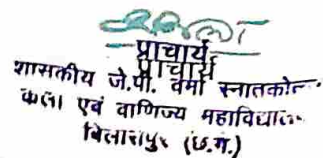 प्राचार्य
प्राचार्य
शासकीय जे.पी. वर्मा स्नातकोत्त
कला एवं वाणिज्य महाविद्याल
बिलासपुर (छ.ग.)